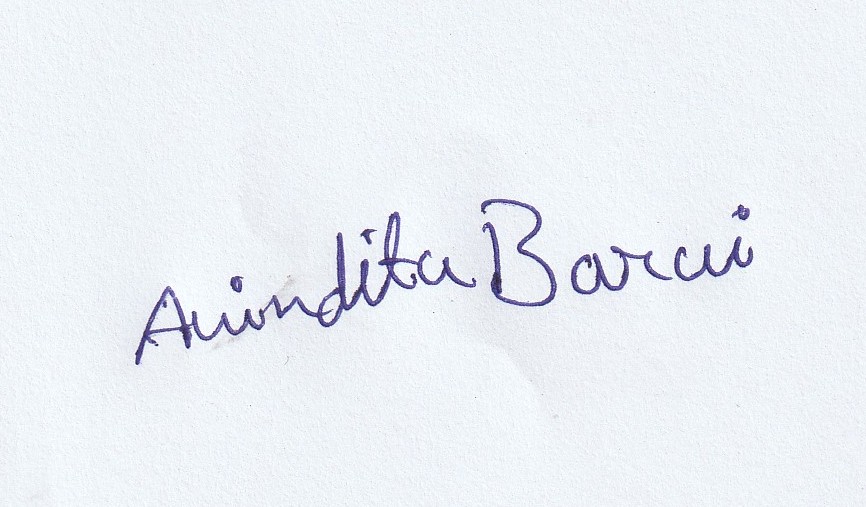 Anindita Barai